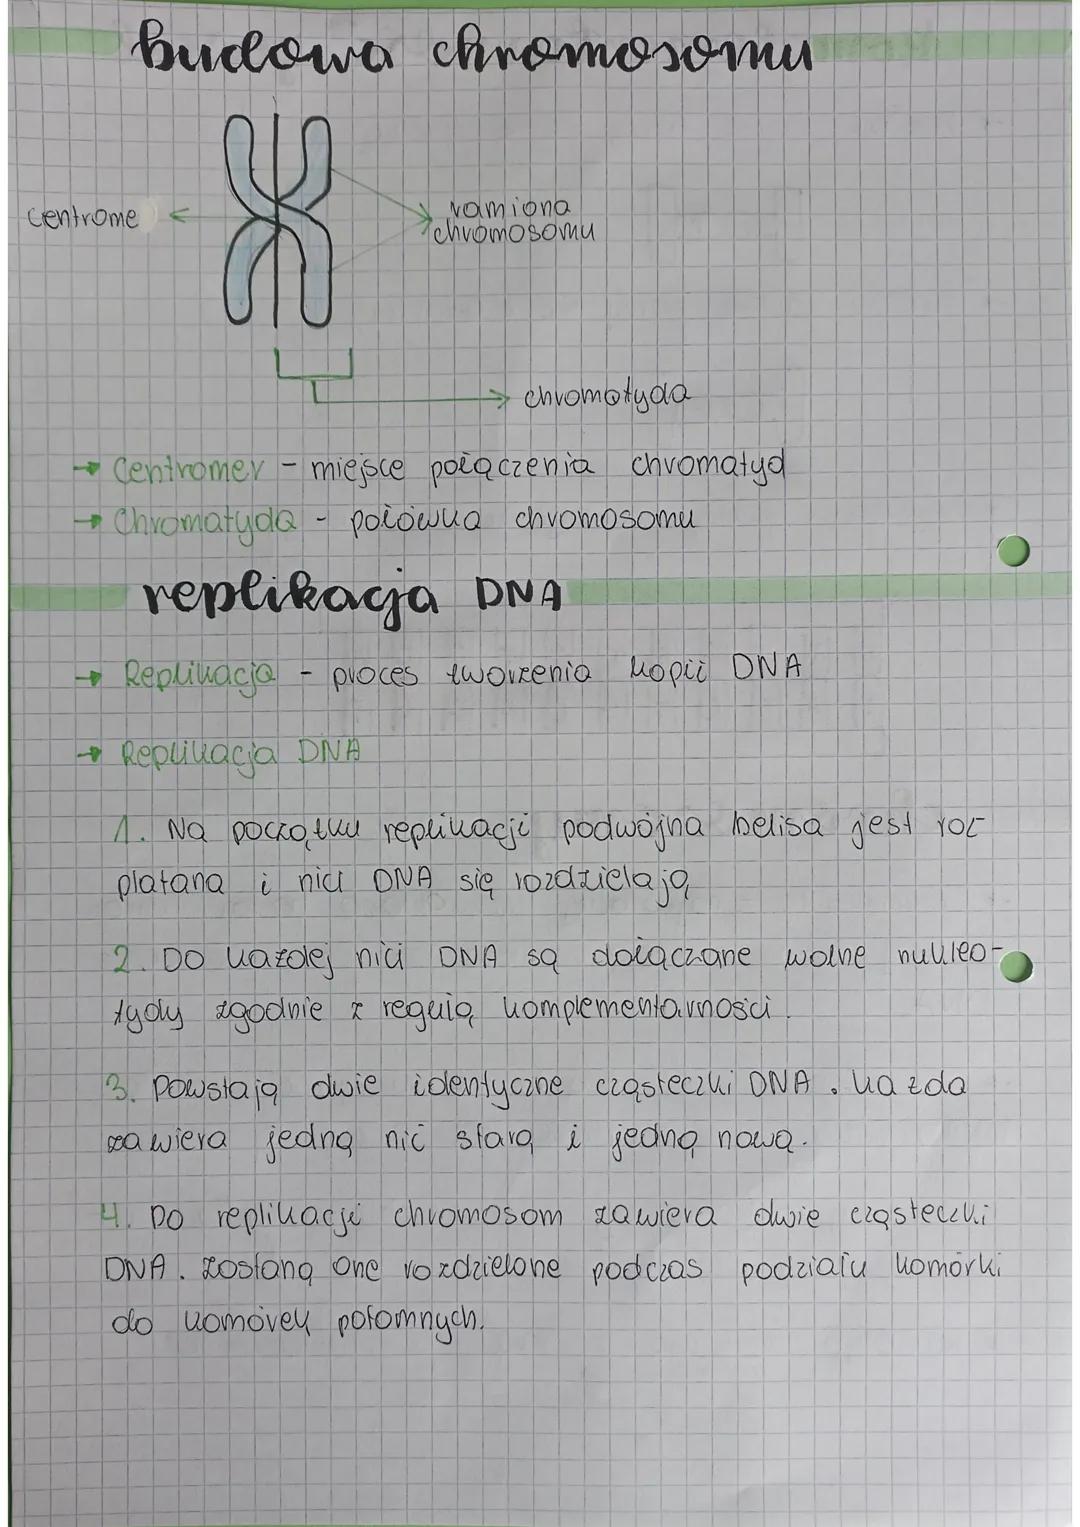 budowa chromosomu
centrome
ramiona
chromosomu
chromotyda
→ Centromer - miejsce połączenia chromatyd
→ Chromatyda - połówka chromosomu
replikacja DNA
→ Replikacja - proces tworzenia kopii DNA
→ Replikacja DNA
1. Na początku replikacji podwójna helisa jest roz
platana i nici DNA się rozdzielają
2. Do każdej nici DNA są dołączane wolne nukleo-
tydy zgodnie z regułą komplementarności.
3. Powstają dwie identyczne cząsteczki DNA. Każda
zawiera jedną nić starą i jedną nową.
4. Po replikacji chromosom zawiera dwie cząsteczki
DNA. Zostaną one rozdzielone podczas podziału komórki
do komórek potomnych.